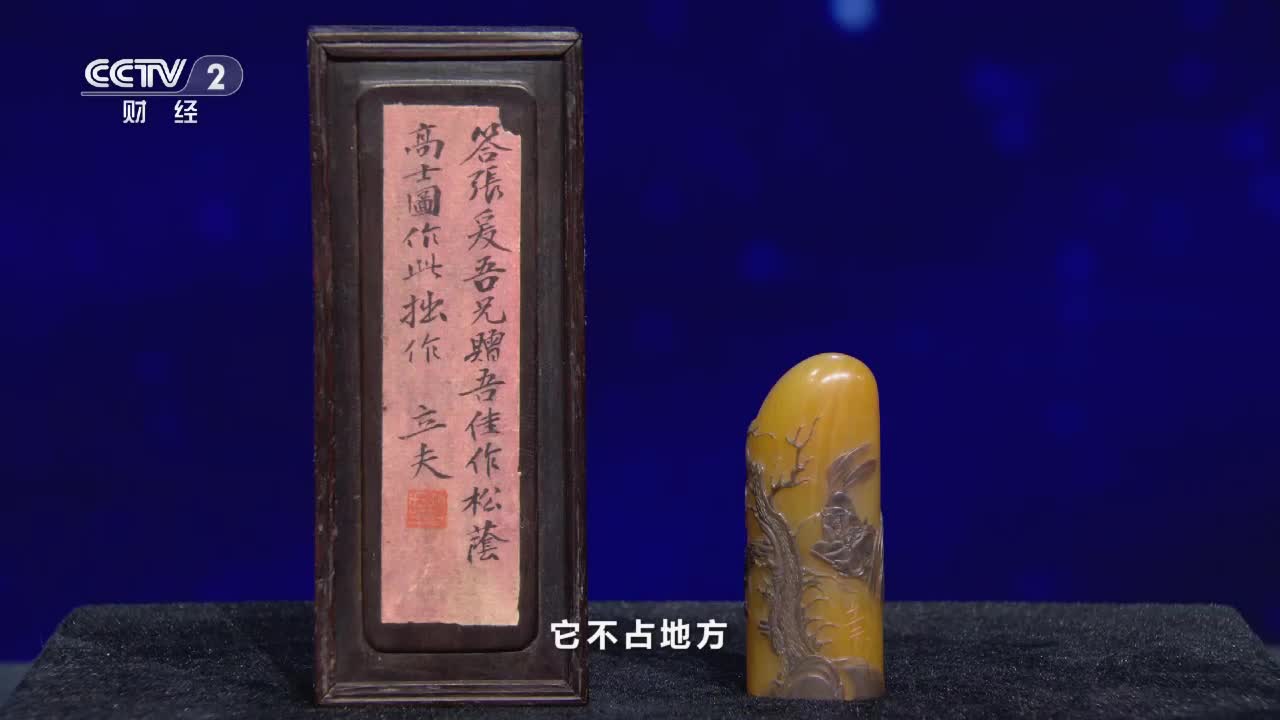 CCTV 2
财经
答張爰吾兄贈吾佳作松蔭
高士圖作此拙作 立夫
它不占地方